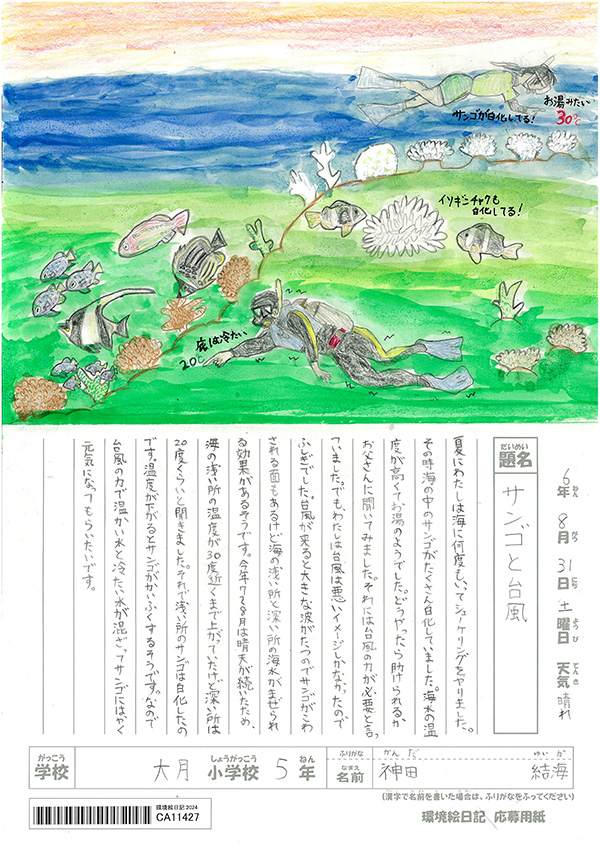 お湯みたい
30℃
サンゴが白化してる!
イソギンチャクも
白化してる!
底は冷たい
20℃
6年 8月 31日 土曜日 天気 晴れ
ねん がつ にち ようび てんき
だいめい
題名
サンゴと台風
夏にわたしは海に何度もいってシュノーケリングをやりました。
その時海の中のサンゴがたくさん白化していました。海水の温
度が高くてお湯のようでした。どうやったら助けられるか
お父さんに聞いてみました。それには台風の力が必要と言っ
ていました。でもわたしは台風は悪いイメージしかなかったので
ふしぎでした。台風が来ると大きな波がたつのでサンゴがこわ
される面もあるけど海の浅い所と深い所の海水がまぜられ
る効果があるそうです。今年7〜8月は晴天が続いたため、
海の浅い所の温度が30度近くまで上がっていたけど深い所は
20度くらいと聞きました。それで浅い所のサンゴは白化したの
です。温度が下がるとサンゴがかいふくするそうです。なので
台風の力で温かい水と冷たい水が混ざってサンゴにはやく
元気になってもらいたいです。
がっこう しょうがっこう ねん
学校 大月 小学校 5年
ふりがな かんだ ゆいか
なまえ
名前 神田 結海
(漢字で名前を書いた場合は、ふりがなをふってください)
環境絵日記 2024
CA11427
環境絵日記 応募用紙